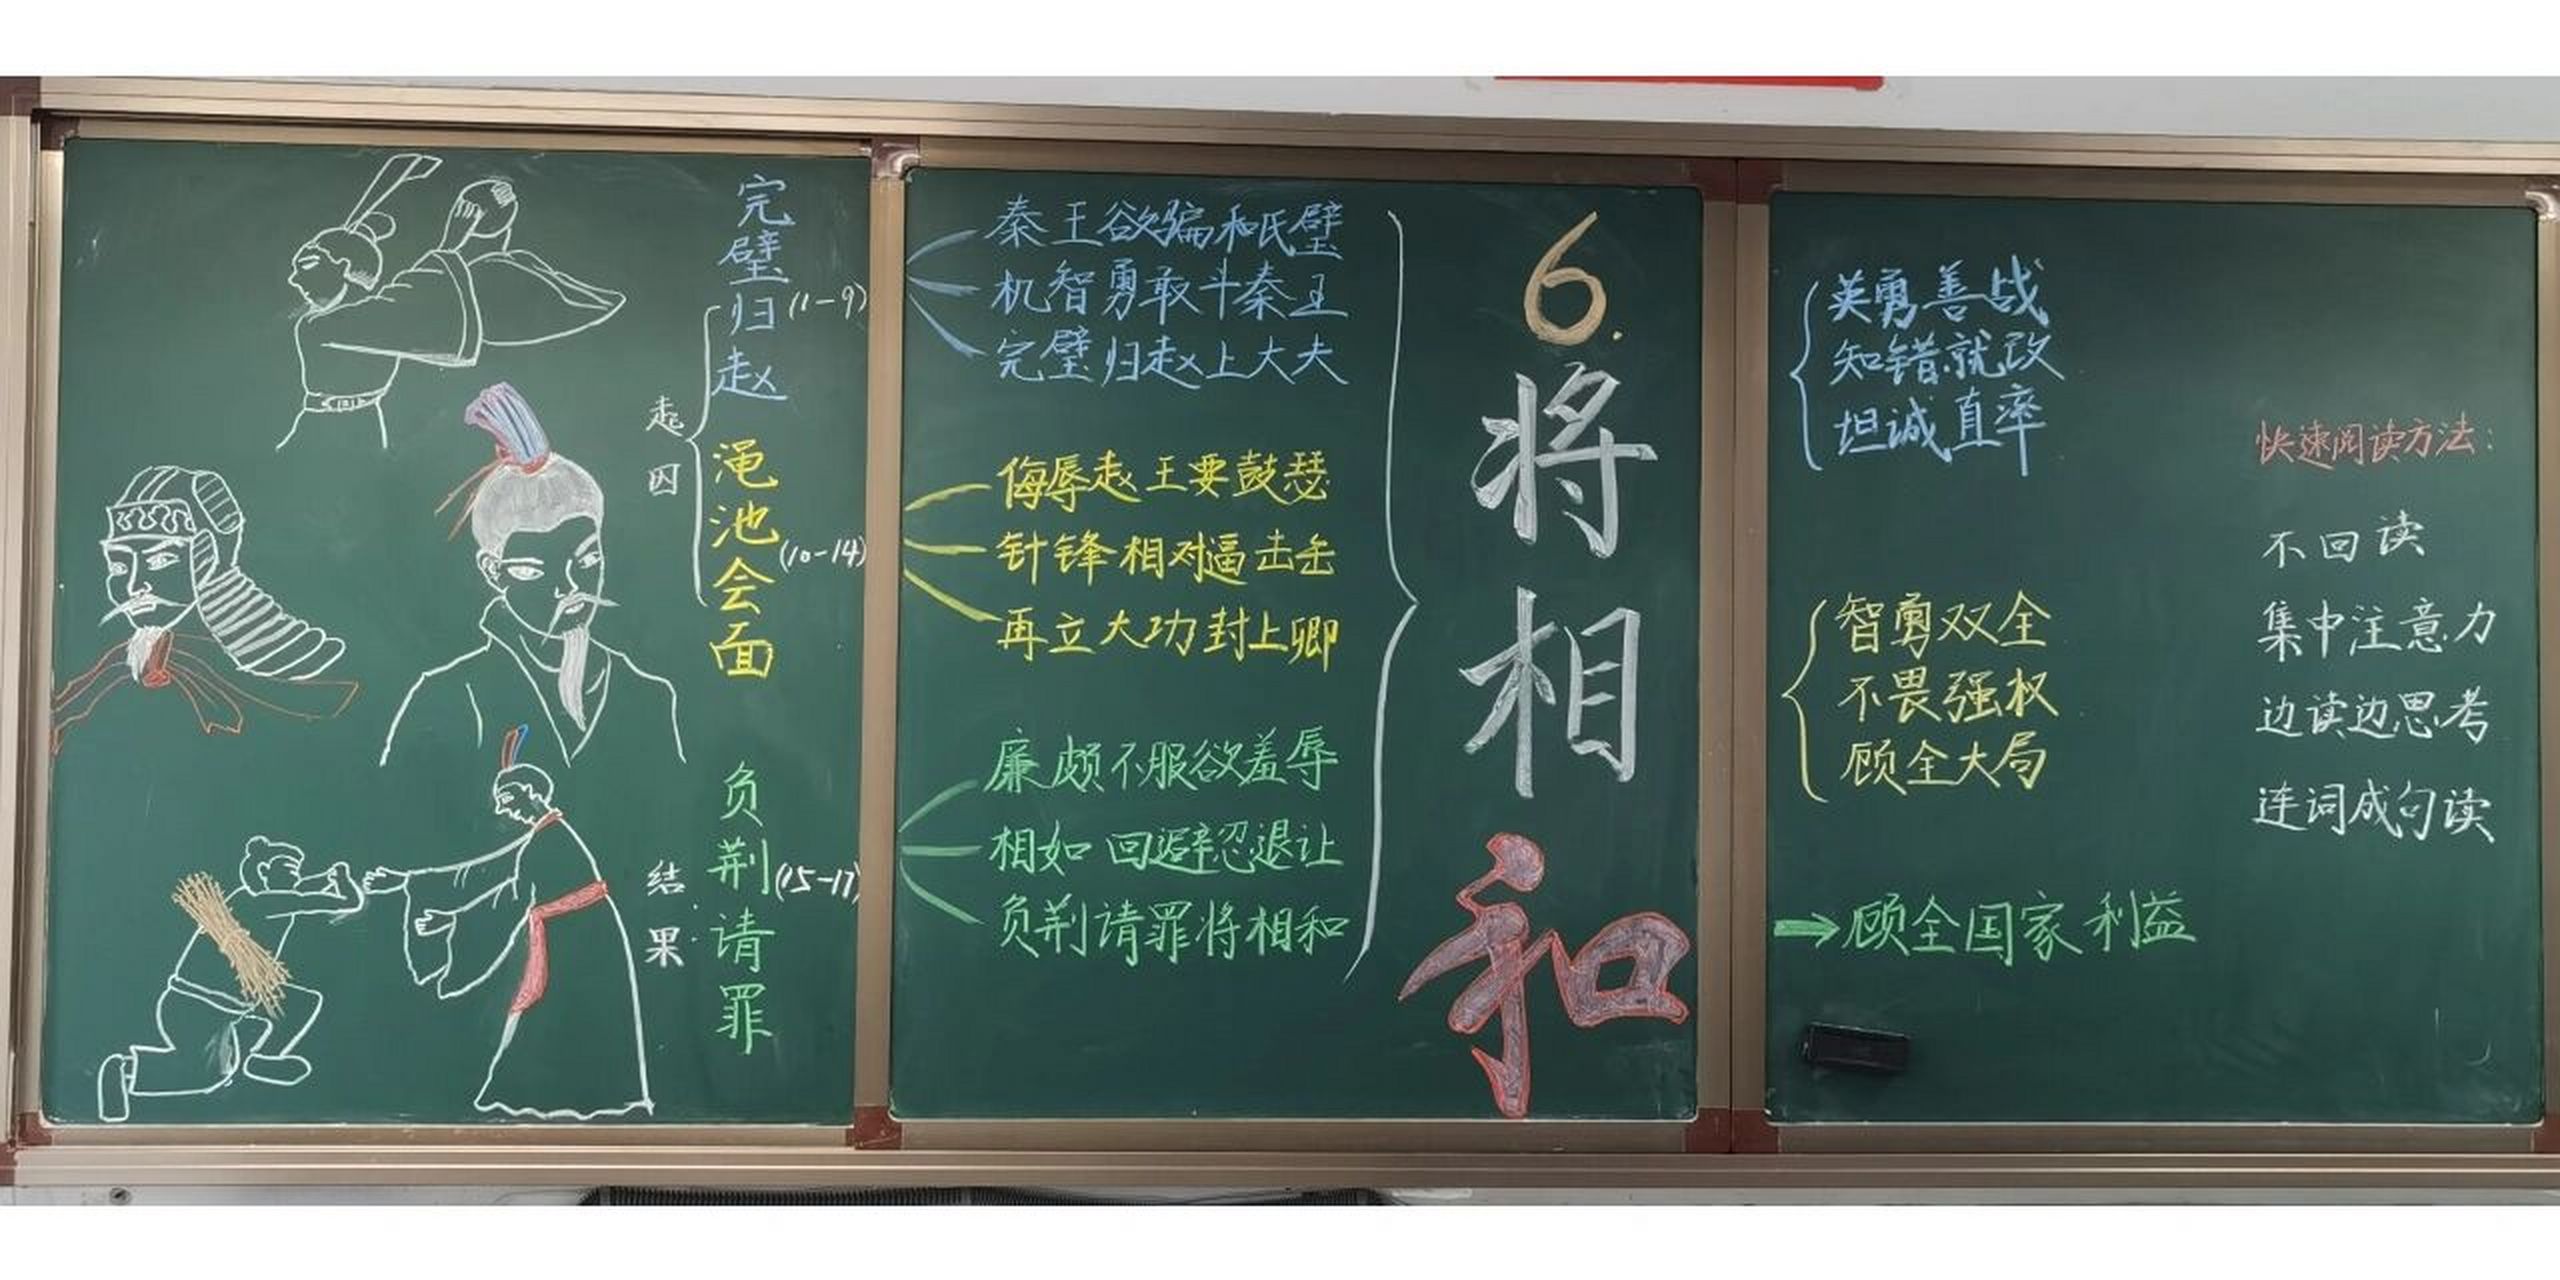 完璧归赵
(1-9)
起因
渑池会面
(10-14)
负荆请罪
(15-17)
结果
秦王欲骗和氏璧
机智勇敢斗秦王
完璧归赵上大夫
侮辱赵王要鼓瑟
针锋相对逼击缶
再立大功封上卿
廉颇不服欲羞辱
相如回避忍退让
负荆请罪将相和
6.
将相和
英勇善战
知错就改
坦诚直率
智勇双全
不畏强权
顾全大局
→顾全国家利益
快速阅读方法：
不回读
集中注意力
边读边思考
连词成句读